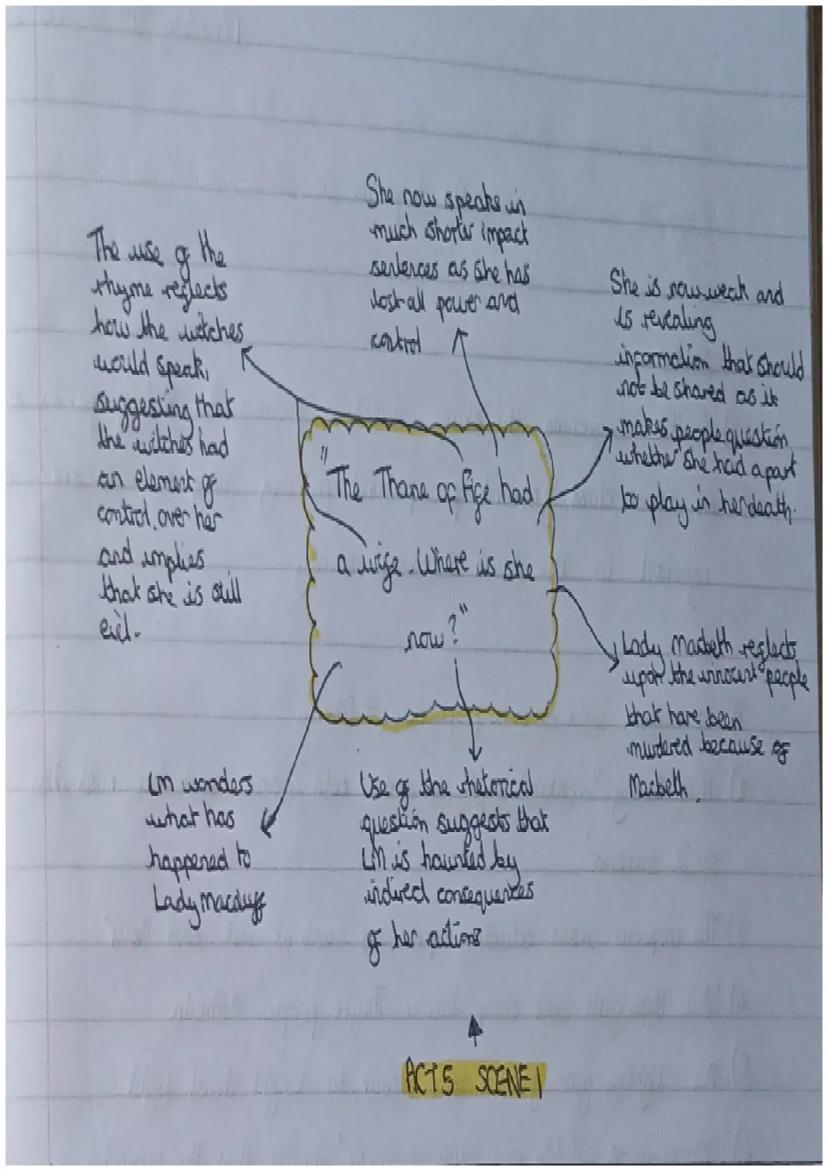 She now speaks in
much shorter impact
sentences as she has
lost all power and
control
The use of the
rhyme reflects
how the witches
would speak,
suggesting that
the witches had
an element of
control over her
and implies
that she is still
evil.
She is now weak and
is revealing
information that should
not be shared as it
makes people question
whether she had a part
to play in her death.
"The Thane of Fife had
a wife. Where is she
now?"
Lady Macbeth reflects
upon the innocent people
that have been
murdered because of
Macbeth.
LM wonders
what has
happened to
Lady Macduff
Use of the rhetorical
question suggests that
LM is haunted by
indirect consequences
of her actions
ACT 5 SCENE 1